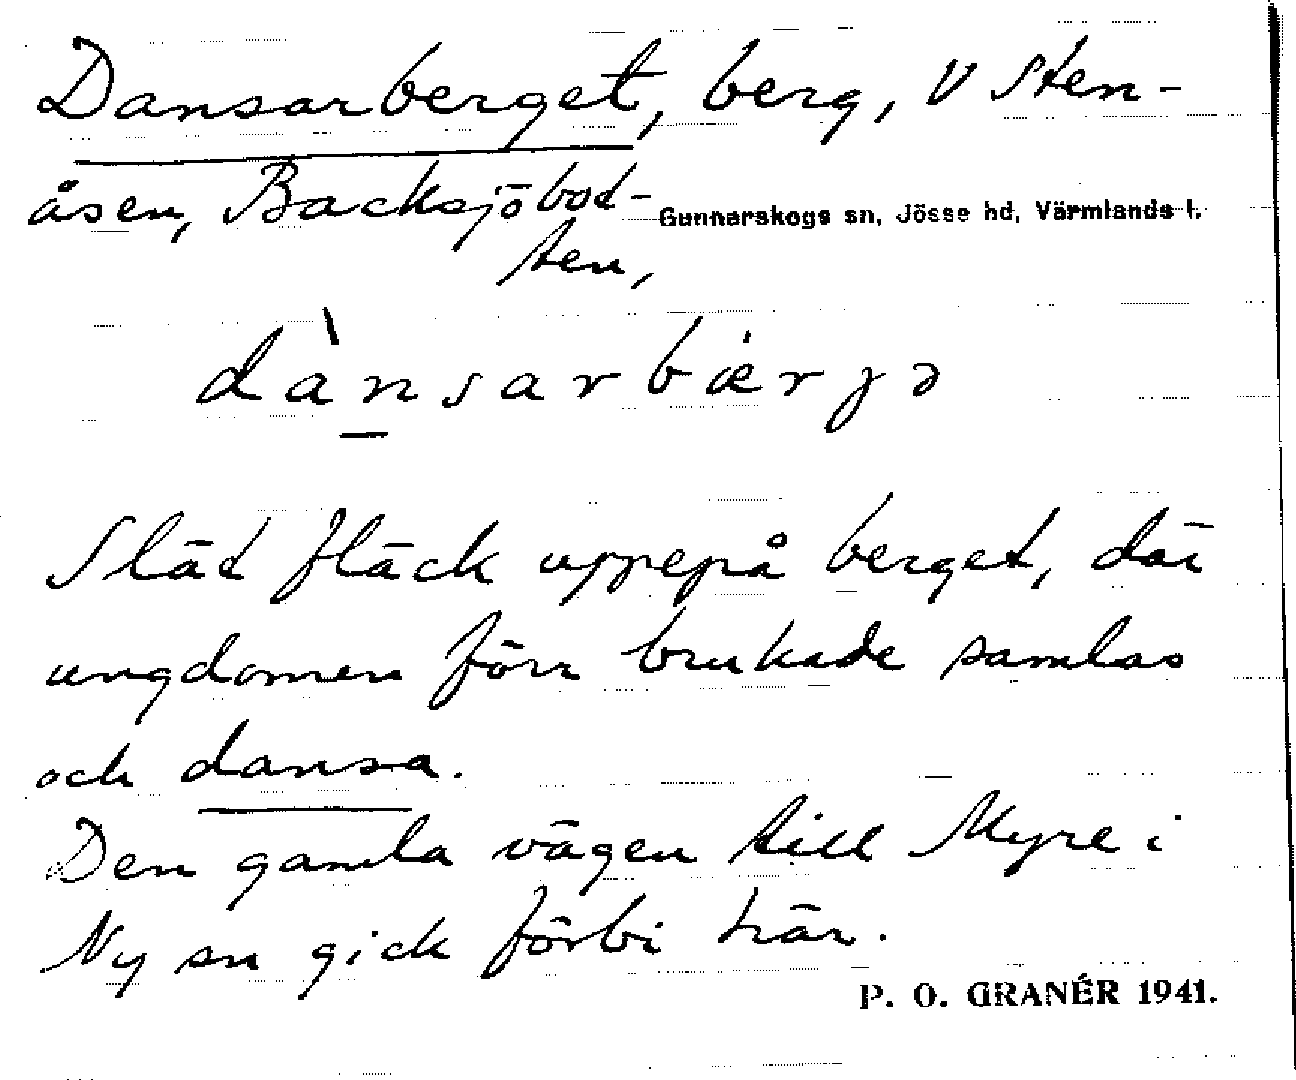 Dansarberget, berg, V Sten-
åsen, Backsjöbot-
ten,
Gunnarskogs sn, Jösse hd, Värmlands l.
dànsarbærjə
Slät fläck uppepå berget, där
ungdomen förr brukade samlas
och dansa.
Den gamla vägen till Myre i
Ny sn gick förbi här.
P. O. GRANÉR 1941.